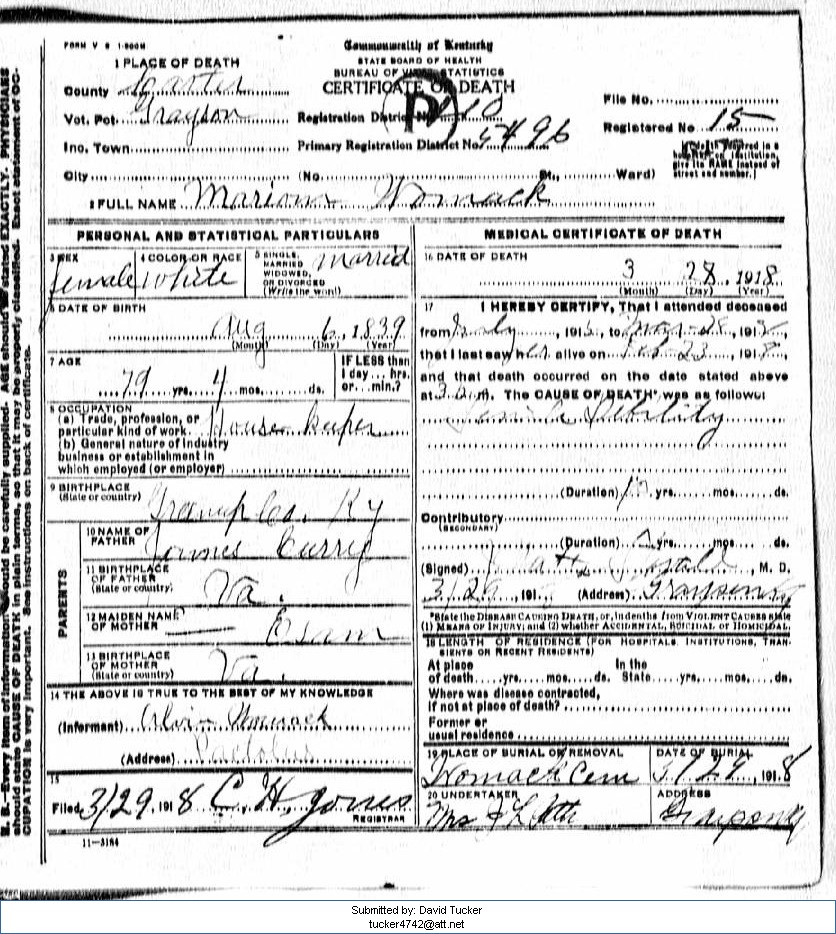 FORM V S 1-500M
Commonwealth of Kentucky
STATE BOARD OF HEALTH
BUREAU OF VITAL STATISTICS
CERTIFICATE OF DEATH
1 PLACE OF DEATH
County Carter
Vot. Pct. Grayson
Inc. Town
City (No. St., Ward)
Registration District No. 210
Primary Registration District No. 5496
File No.
Registered No. 15
(If death occurred in a hospital or institution, give its NAME instead of street and number.)
2 FULL NAME Womack
PERSONAL AND STATISTICAL PARTICULARS
3 SEX female
4 COLOR OR RACE White
5 SINGLE, MARRIED WIDOWED, OR DIVORCED (Write the word) Married
6 DATE OF BIRTH
Aug 6, 1839
(Month) (Day) (Year)
7 AGE
79 yrs. 4 mos. ds.
IF LESS than 1 day... hrs. or... min.?
8 OCCUPATION
(a) Trade, profession, or particular kind of work. House keeper
(b) General nature of industry business or establishment in which employed (or employer)
9 BIRTHPLACE (State or country) Greenup Co. Ky
PARENTS
10 NAME OF FATHER James Curry
11 BIRTHPLACE OF FATHER (State or country) Va.
12 MAIDEN NAME OF MOTHER — Esam
13 BIRTHPLACE OF MOTHER (State or country) Va.
14 THE ABOVE IS TRUE TO THE BEST OF MY KNOWLEDGE
(Informant) Womack
(Address) Pactolus
15
Filed 3/29 1918 C. H. Jones
REGISTRAR
11-3184
MEDICAL CERTIFICATE OF DEATH
16 DATE OF DEATH
3 28, 1918
(Month) (Day) (Year)
17 I HEREBY CERTIFY, That I attended deceased
from July, 191, to Mar-28, 1918,
that I last saw her alive on Feb 23, 1918,
and that death occurred on the date stated above
at 3 a m. The CAUSE OF DEATH* was as follows:
Senile Debility
(Duration) yrs. mos. ds.
Contributory (SECONDARY)
(Duration) yrs. mos. ds.
(Signed) , M. D.
3/29, 191 (Address) Grayson Ky
*State the DISEASE CAUSING DEATH, or, in deaths from VIOLENT CAUSES state (1) MEANS OF INJURY; and (2) whether ACCIDENTAL, SUICIDAL or HOMICIDAL.
18 LENGTH OF RESIDENCE (FOR HOSPITALS, INSTITUTIONS, TRANSIENTS OR RECENT RESIDENTS)
At place of death yrs. mos. ds. In the State yrs. mos. ds.
Where was disease contracted, if not at place of death?
Former or usual residence
19 PLACE OF BURIAL OR REMOVAL Womack Cem
DATE OF BURIAL 3/29, 1918
20 UNDERTAKER Mrs
ADDRESS Grayson Ky
N. B.—Every item of information should be carefully supplied. AGE should be stated EXACTLY. PHYSICIANS
should state CAUSE OF DEATH in plain terms, so that it may be properly classified. Exact statement of OC-
CUPATION is very important. See instructions on back of certificate.
Submitted by: David Tucker
tucker4742@att.net